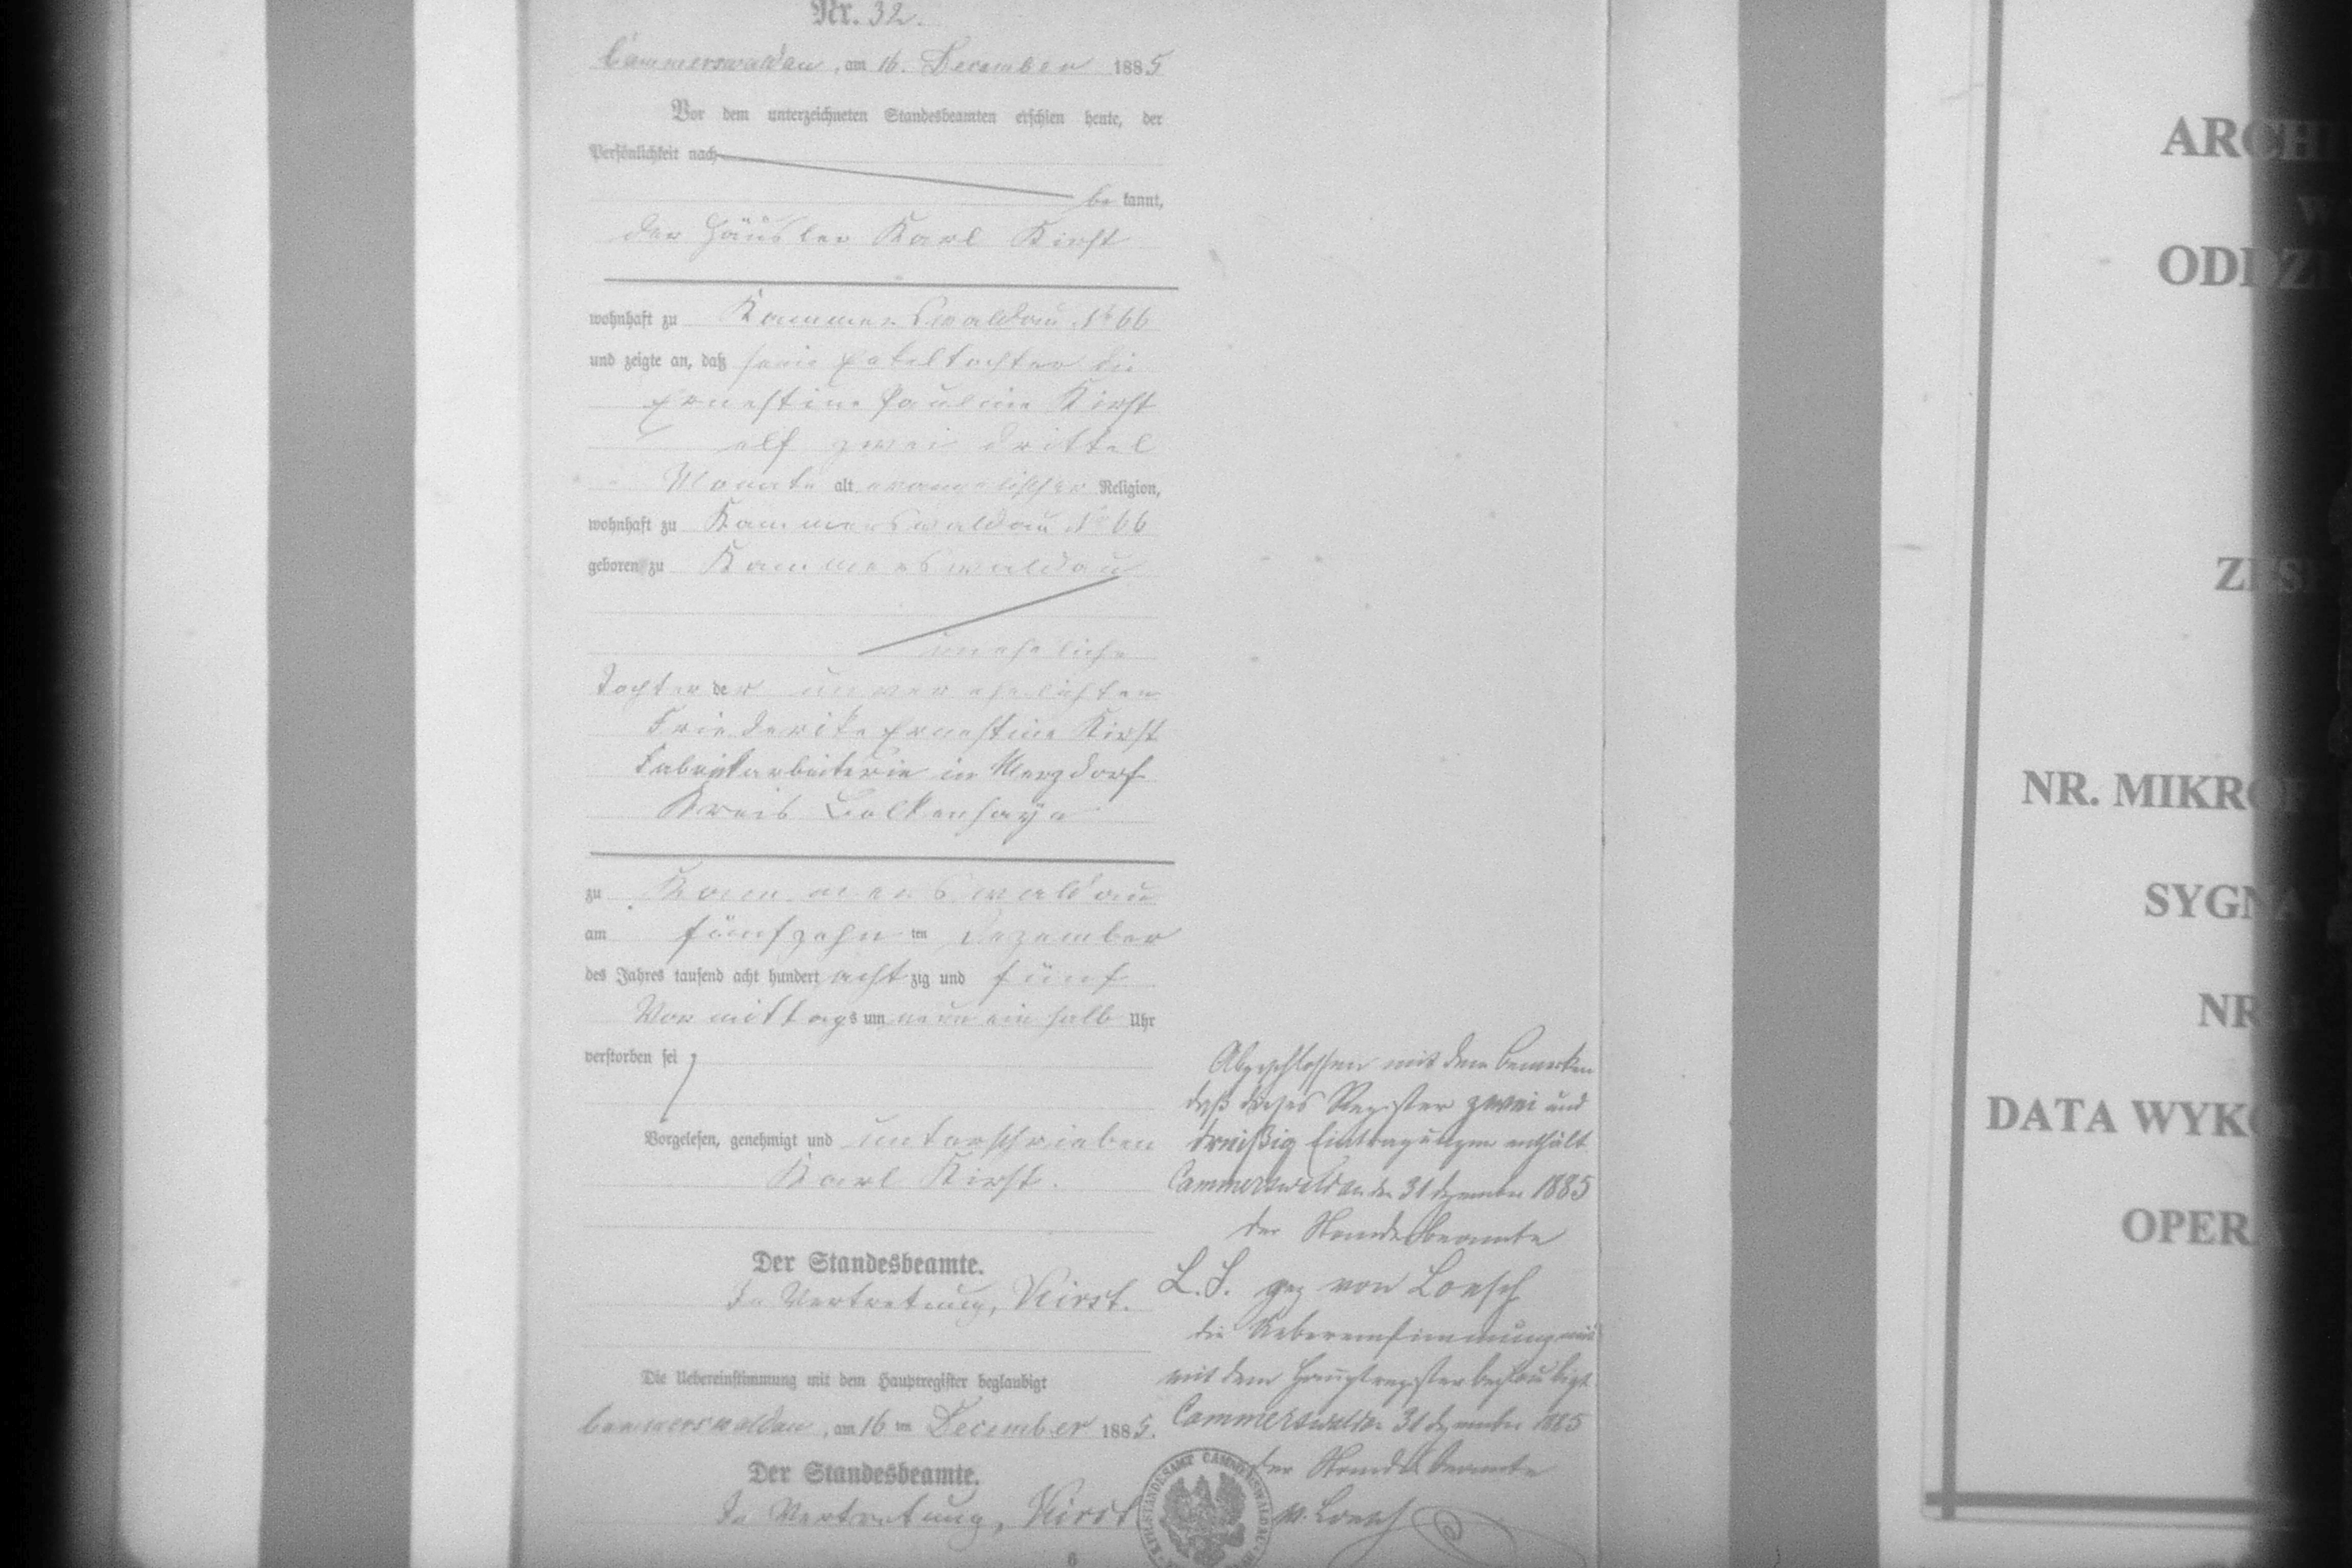 Nr. 32.
Cammerswaldau, am 16. December 1885
Vor dem unterzeichneten Standesbeamten erschien heute, der
Persönlichkeit nach
be kannt,
der Häusler Karl Kirst
wohnhaft zu Kammerswaldau No 66
und zeigte an, daß seine Enkeltochter die
Ernestine Pauline Kirst
elf zwei drittel
Monate alt evangelischer Religion,
wohnhaft zu Kammerswaldau No 66
geboren zu Kammerswaldau
uneheliche
Tochter der unverehelichten
Friederike Ernestine Kirst
Fabrikarbeiterin in Merzdorf
Kreis Bolkenhayn
zu Kammerswaldau
am fünfzehn ten Dezember
des Jahres tausend acht hundert acht zig und fünf
Vormittags um neun ein halb Uhr
verstorben sei
Vorgelesen, genehmigt und unterschrieben
Karl Kirst.
Der Standesbeamte.
In Vertretung, Kirst.
Die Uebereinstimmung mit dem Hauptregister beglaubigt
Cammerswaldau, am 16 ten December 1885.
Der Standesbeamte.
In Vertretung, Kirst
6
Abgeschlossen mit dem Bemerken
daß dieses Register zwei und
dreißig Eintragungen enthält
Cammerswaldau den 31 Dezember 1885
der Standesbeamte
L. S. gez von Loesch
die Uebereinstimmung
mit dem Hauptregister beglaubigt
Cammerswaldau 31 Dezember 1885
der Standesbeamte
v. Loesch
STANDESAMT CAMMERSWALDAU
ARCHI
ODDZI
NR. MIKRO
SYGNA
NR
DATA WYKO
OPERA